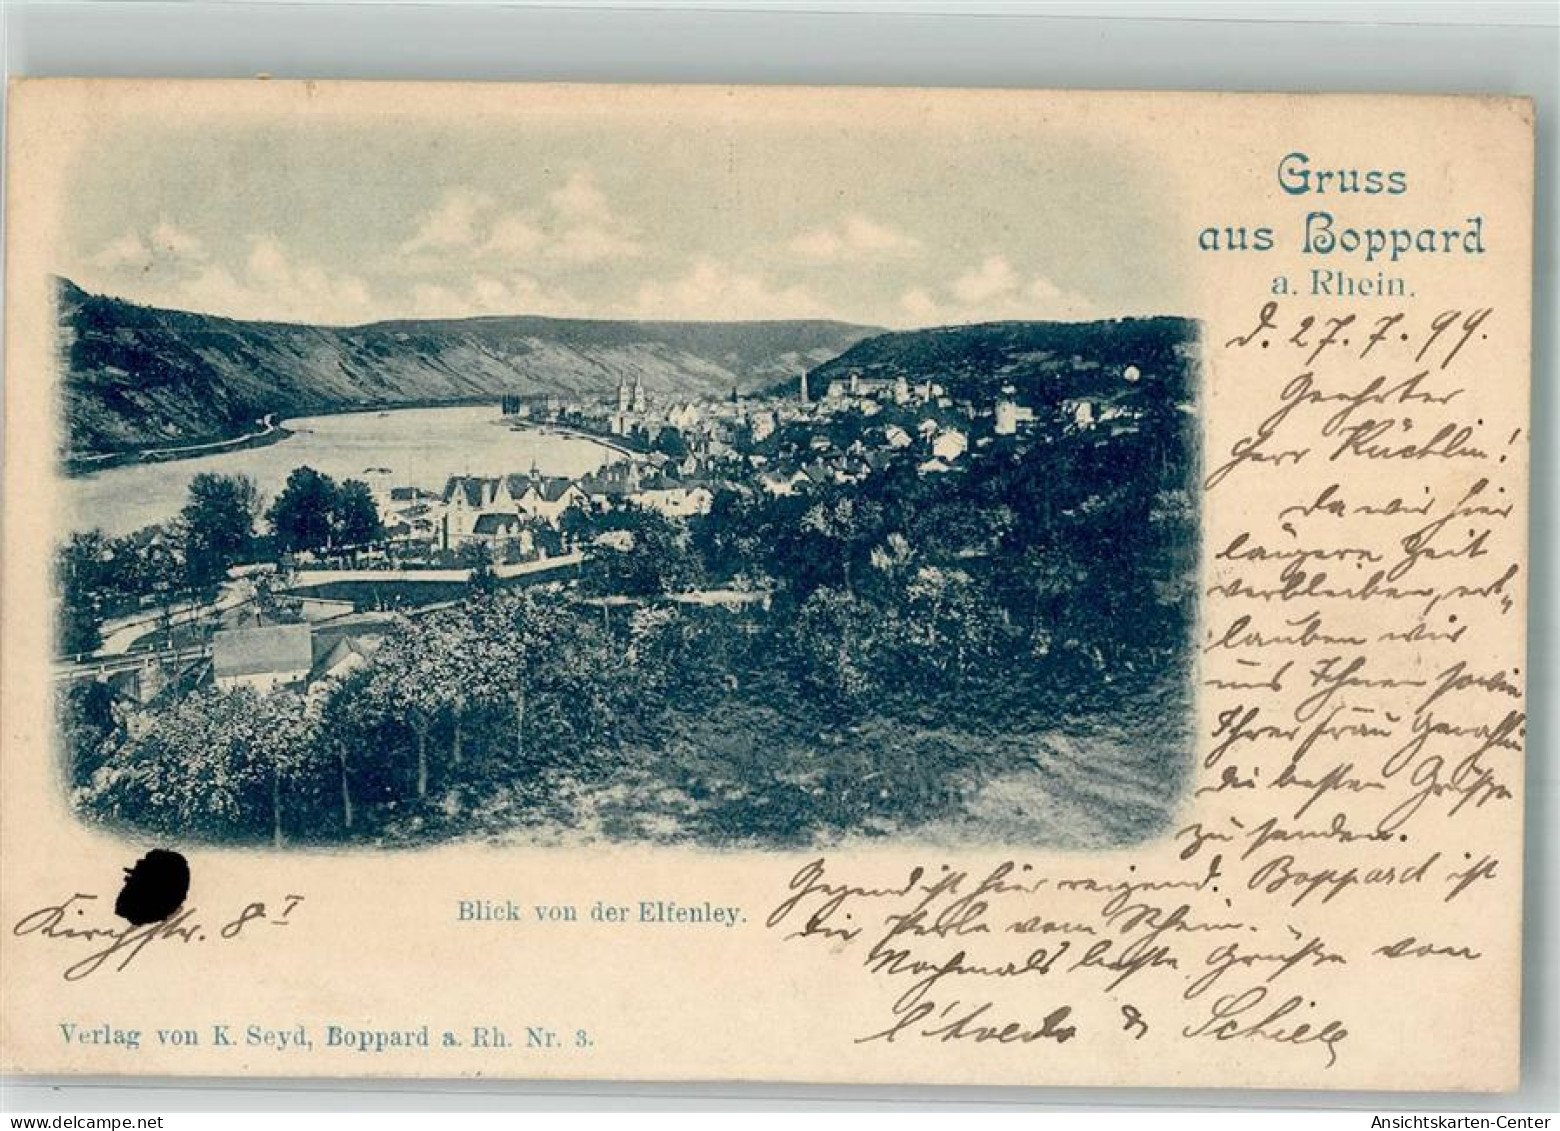 Gruss
aus Boppard
a. Rhein.
d. 27. 7. 99.
Geehrter
Herr Küchlin!
Da wir hier
längere Zeit
verbleiben, er-
lauben wir
uns Ihnen sowie
Ihrer Frau Gemahlin
die besten Grüße
zu senden.
Gegend ist hier reizend. Boppard ist
die Perle vom Rhein.
Nochmals beste Grüße von
& Schiele
Kirchstr. 8 I
Blick von der Elfenley.
Verlag von K. Seyd, Boppard a. Rh. Nr. 3.
www.delcampe.net
Ansichtskarten-Center